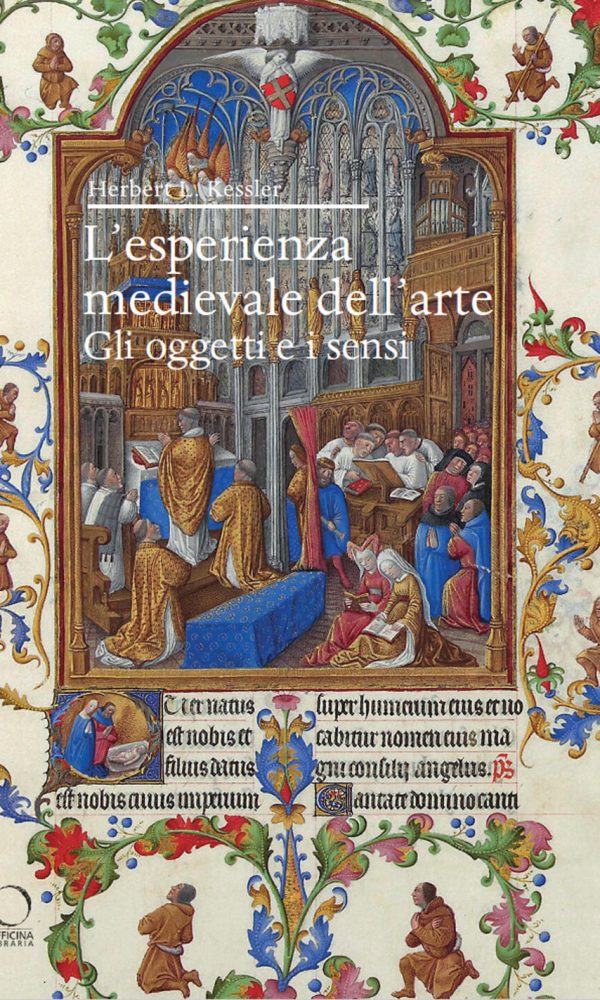 Herbert L. Kessler
L'esperienza
medievale dell'arte
Gli oggetti e i sensi
Uer natus
est nobis et
filius datus
est nobis cuius imperium
super humerum eius et uo
cabitur nomen eius ma
gni consilij angelus. ps
Cantate domino canti
FFICINA
BRARIA